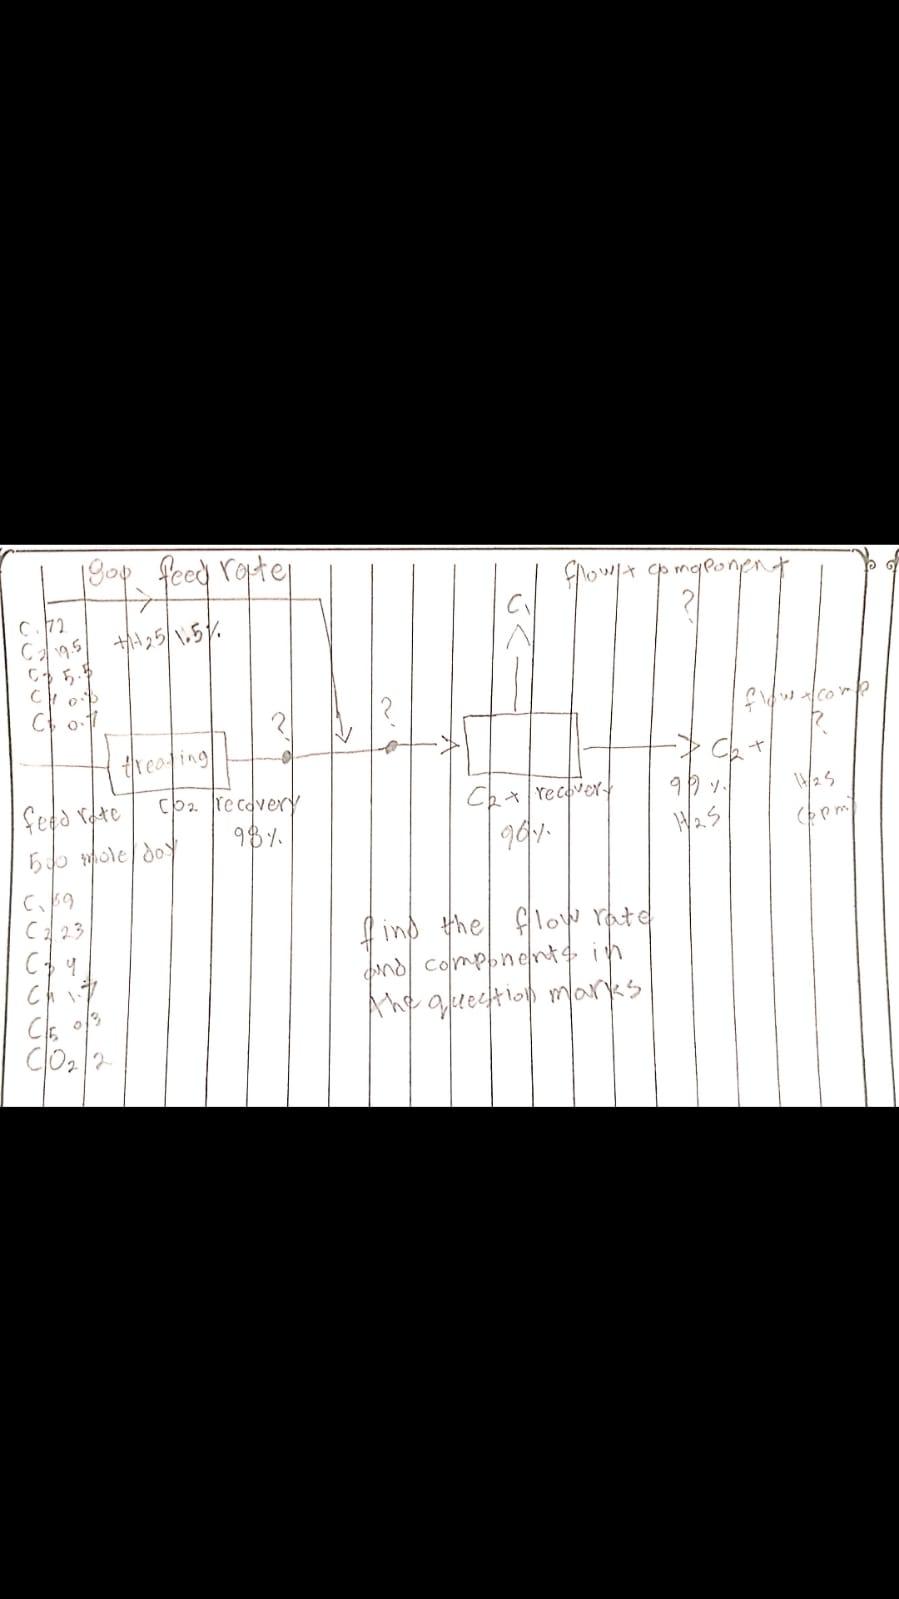 feed rate
flow+ component
?
C1
C1 72
C2 19.5
+H2S 1.5%
C3 5.5
C4
C5 0.7
flow+comp
?
?
?
treating
C2+
CO2 recovery
98%
C2+ recovery
96%
99%
H2S
H2S
feed rate
500 mole/day
C1 69
C2 23
C3 4
C4 1.7
C5 0.3
CO2 2
find the flow rate
and components in
the question marks